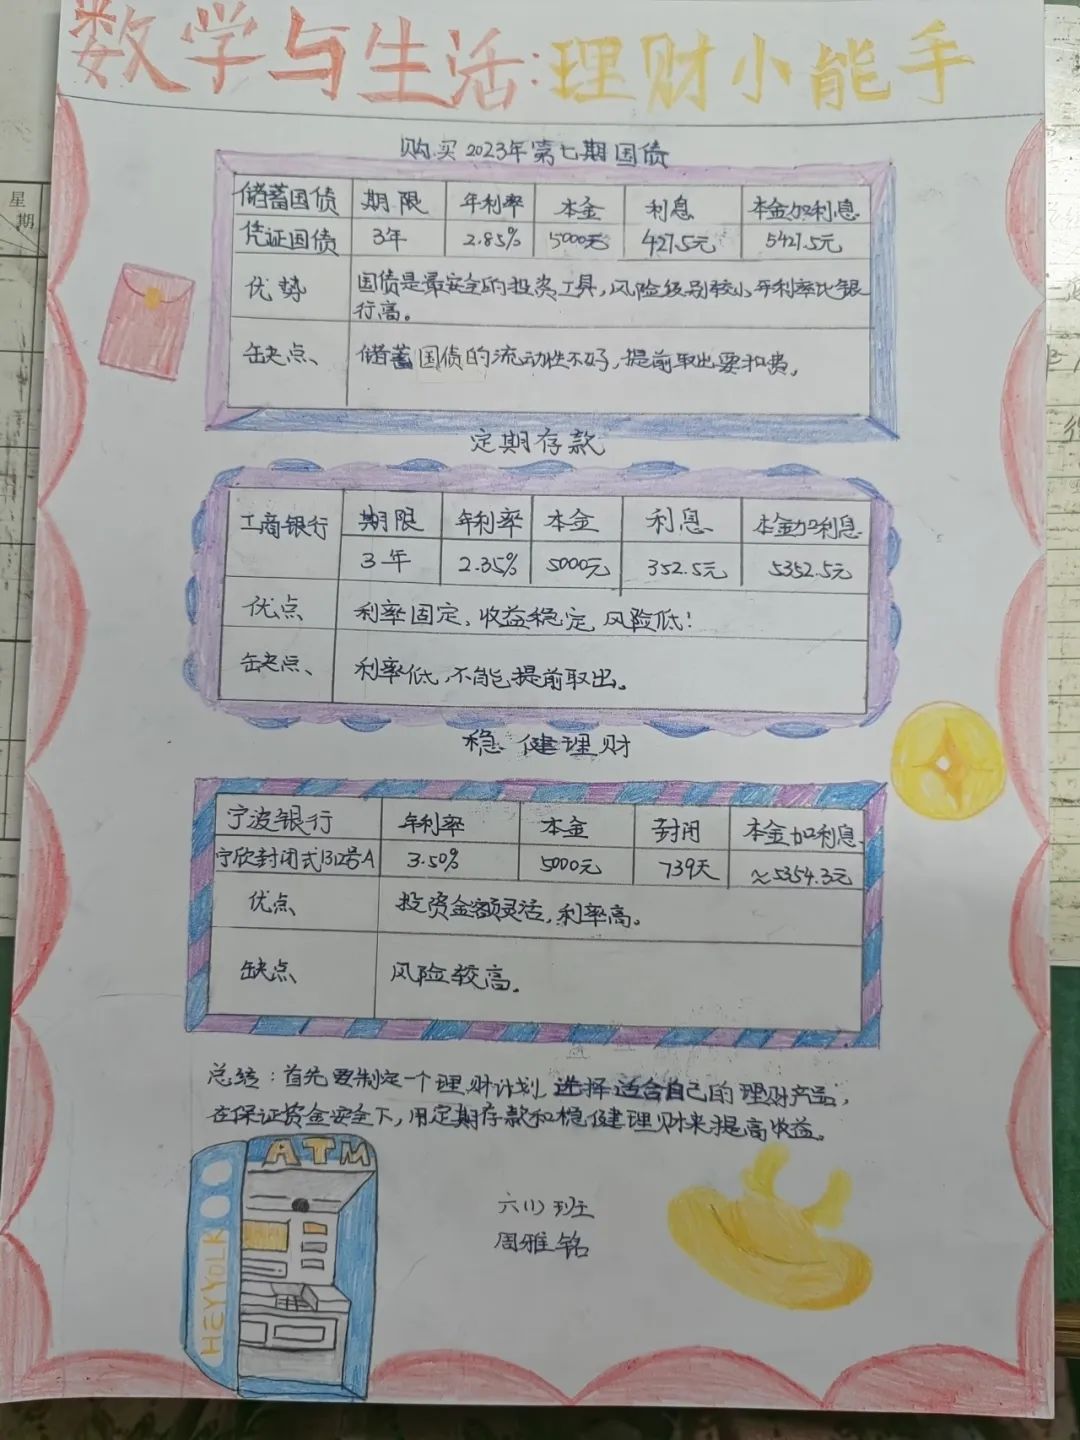 数学与生活:理财小能手
购买2023年第七期国债
储蓄国债 期限 年利率 本金 利息 本金加利息
凭证国债 3年 2.85% 5000元 427.5元 5427.5元
优势 国债是最安全的投资工具,风险级别较小,年利率比银
行高。
缺点、 储蓄国债的流动性不好,提前取出要扣费。
定期存款
工商银行 期限 年利率 本金 利息 本金加利息
3年 2.35% 5000元 352.5元 5352.5元
优点 利率固定,收益稳定,风险低!
缺点、 利率低,不能提前取出。
稳健理财
宁波银行 年利率 本金 封闭 本金加利息
宁欣封闭式1312号A 3.50% 5000元 739天 ≈5354.3元
优点 投资金额灵活,利率高。
缺点 风险较高。
总结:首先要制定一个理财计划,选择适合自己的理财产品,
在保证资金安全下,用定期存款和稳健理财来提高收益。
ATM
HEYYOLK
六(1)班
周雅铭
星
期